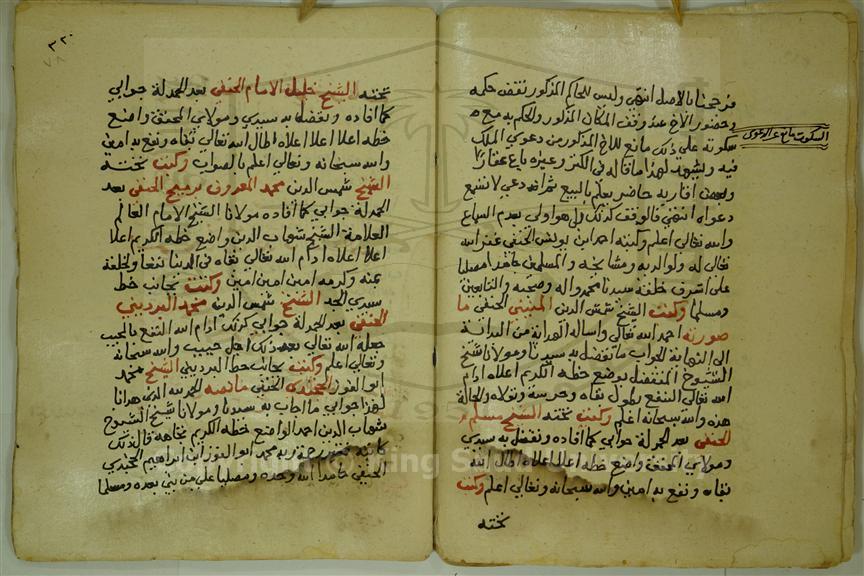 فرجحنا بالاصل انتهي وليس للحاكم المذكور نقض حكمه
وحضور الاخ عند وقف المكان المذكور والحكم به مع
سكوته علي ذلك مانع للاخ المذكور من دعوي الملك
السكوت مانع عن الدعوى
فيه ويشهد لهذا ما قاله في الكنز وغيره باع عقارا
وبعض اقاربه حاضر يعلم بالبيع ثم ادعي لا تسمع
دعواه انتهي فالوقف كذلك بل هو اولى بعدم السماع
والله تعالي اعلم وكتبه احمد ابن يونس الحنفي غفر الله
تعالي له ولوالديه ومشايخه والمسلمين حامدا مصليا
على اشرف خلقه سيدنا محمد واله وصحبه والتابعين
ومسلما وكتب الشيخ شمس الدين الحنفي ما
صورته احمد الله تعالي واساله الهداية من البداية
الى النهاية الجواب ما تفضل به سيدنا ومولانا شيخ
الشيوخ المتفضل بوضع خطه الكريم اعلاه ادام
الله تعالي النفع بطول بقاه وحرسه وتولاه والحالة
هذه والله سبحانه اعلم وكتب تحته الشيخ مسلم
الحنفي بعد الحمدلة جوابي كما افاده وتفضل به سيدي
ومولاي المحقق واضع خطه اعلا اعلاه اطال الله
بقاه ونفع به امين والله سبحانه وتعالي اعلم وكتب
تحته
٣٢٠
٧٨
تحته الشيخ خليل الامام الحنفي بعد الحمدلة جوابي
كما افاده وتفضل به سيدي ومولاي المحقق واضع
خطه اعلا اعلا اعلاه اطال الله تعالي بقاه ونفع به امين
والله سبحانه وتعالي اعلم بالصواب وكتب تحته
الشيخ شمس الدين محمد الحنفي بعد
الحمدلة جوابي كما افاده مولانا الشيخ الامام العالم
العلامة الشيخ شهاب الدين واضع خطه الكريم اعلا
اعلا اعلاه ادام الله تعالي بقاه في الدنيا نفعا ولخلقه
بمنه وكرمه امين امين امين وكتب بجانب خط
سيدي الجد الشيخ شمس الدين محمد البرديني
الحنفي بعد الحمدلة جوابي كذلك ادام الله النفع بالمجيب
جعله الله تعالي بعد ذلك اجل حبيب والله سبحانه
وتعالي اعلم وكتب بجانب خط البرديني الشيخ محمد
ابو الفوز الحنفي ما نصه الحمد لله الذي هدانا
لهذا جوابي ما اجاب به سيدنا ومولانا شيخ الشيوخ
شهاب الدين احمد الواضع خطه الكريم تجاهه قال ذلك
كاتبه فقير رحمة ربه محمد ابو الفوز ابن ابراهيم
الحنفي حامدا الله وحده ومصليا على من نبي بعده ومسلما